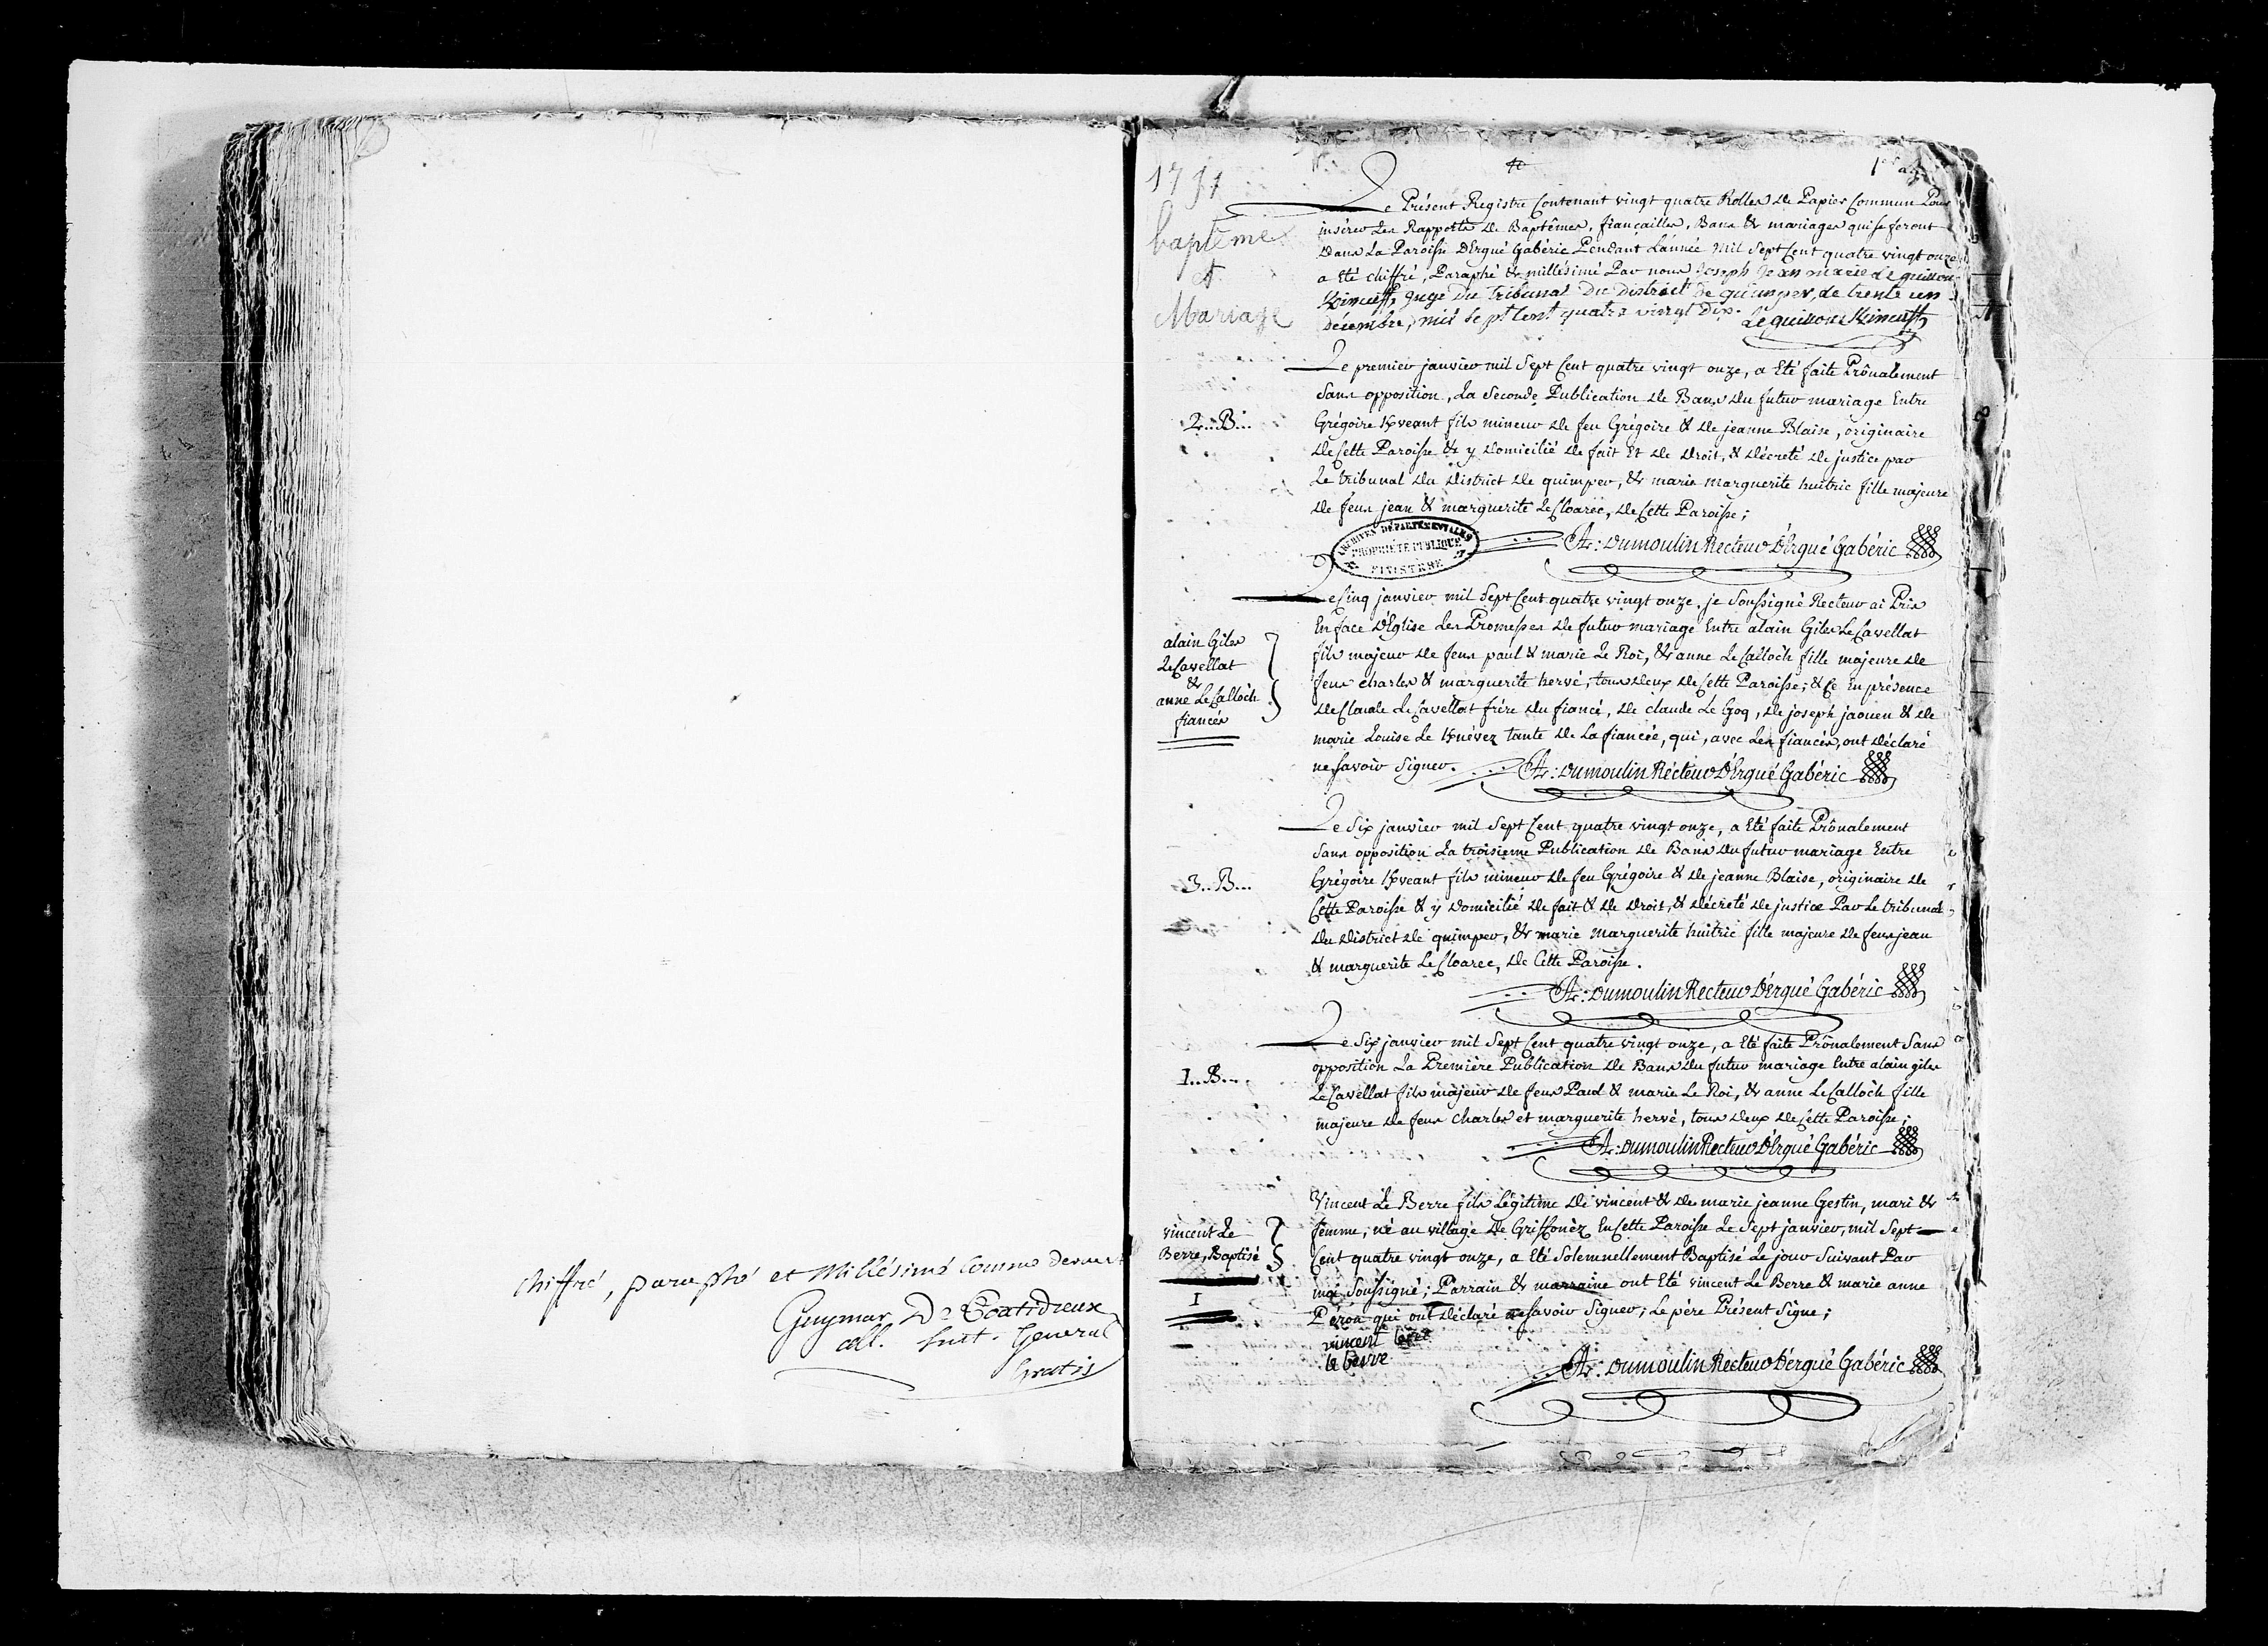 chiffré, paraphé et Millésimé comme devant
Guymar De Coatidreux
all. Gratis
1791
baptême
et
Mariage
1er
Le Présent Registre Contenant vingt quatre Rolles de Papier Commun Pour
insérer les Rapports de Baptêmes, fiançailles, Bans & mariages qui se feront
dans la Paroisse d'Ergué Gabéric Pendant l'année mil sept cent quatre vingt onze
a été chiffré, Paraphé & millésimé Par nous joseph jean marie Le guillou
Juge du Tribunal du district de quimper, de trente un
décembre, mil sept cent quatre vingt dix.
Le premier janvier mil sept cent quatre vingt onze, a été faite Prônalement
sans opposition, la seconde Publication de Bans du futur mariage Entre
2..B...
Grégoire Kveant fils mineur de feu Grégoire & de jeanne Blaise, originaire
de Cette Paroisse & y domicilié de fait et de droit, & décreté de justice par
Le tribunal du district de quimper, & marie marguerite huitric fille majeure
de feus jean & marguerite Le Cloarec, de Cette Paroisse;
ARCHIVES DÉPARTEMENTALES
PROPRIÉTÉ PUBLIQUE
FINISTÈRE
Al: dumoulin Recteur d'Ergué Gabéric
Le Cinq janvier mil sept cent quatre vingt onze, je soussigné Recteur ai Pris
En face d'Eglise les Promesses de futur mariage Entre alain Giles Le Cavellat
alain Giles
Le Cavellat
&
anne Le Calloch
fiancés
fils majeur de feus paul & marie Le Roi, & anne Le Calloch fille majeure de
feus charles & marguerite hervé, tous deux de Cette Paroisse; & Ce En présence
de Claude Le Cavellat frère du fiancé, de claude Le Goq, de joseph jaouen & de
marie Louise Le Knévez tante de la fiancée, qui, avec les fiancés, ont déclaré
ne savoir signer. Al: dumoulin Récteur d'Ergué Gabéric
Le six janvier mil sept cent quatre vingt onze, a été faite Prônalement
sans opposition la troisieme Publication de Bans du futur mariage Entre
3..B...
Grégoire Kveant fils mineur de feu Grégoire & de jeanne Blaise, originaire de
Cette Paroisse & y domicilié de fait & de droit, & décreté de justice Par Le tribunal
du district de quimper, & marie marguerite huitric fille majeure de feus jean
& marguerite Le Cloarec, de Cette Paroisse.
Al: dumoulin Recteur d'Ergué Gabéric
Le six janvier mil sept cent quatre vingt onze, a été faite Prônalement sans
1..B...
opposition la Première Publication de Bans du futur mariage Entre alain giles
Le Cavellat fils majeur de feus Paul & marie Le Roi, & anne Le Calloch fille
majeure de feus charles et marguerite hervé, tous deux de Cette Paroisse;
Al: dumoulin Recteur d'Ergué Gabéric
Vincent Le Berre fils Légitime de vincent & de marie jeanne Gestin, mari &
vincent Le
Berre, Baptisé
1
femme, né au village de Griffonèz En Cette Paroisse Le sept janvier, mil sept
Cent quatre vingt onze, a été solemnellement Baptisé Le jour suivant Par
moi soussigné; Parrain & marraine ont été vincent Le Berre & marie anne
Péron qui ont déclaré ne savoir signer; Le père Présent signe;
vincent
le berre
Al: dumoulin Recteur d'Ergué Gabéric